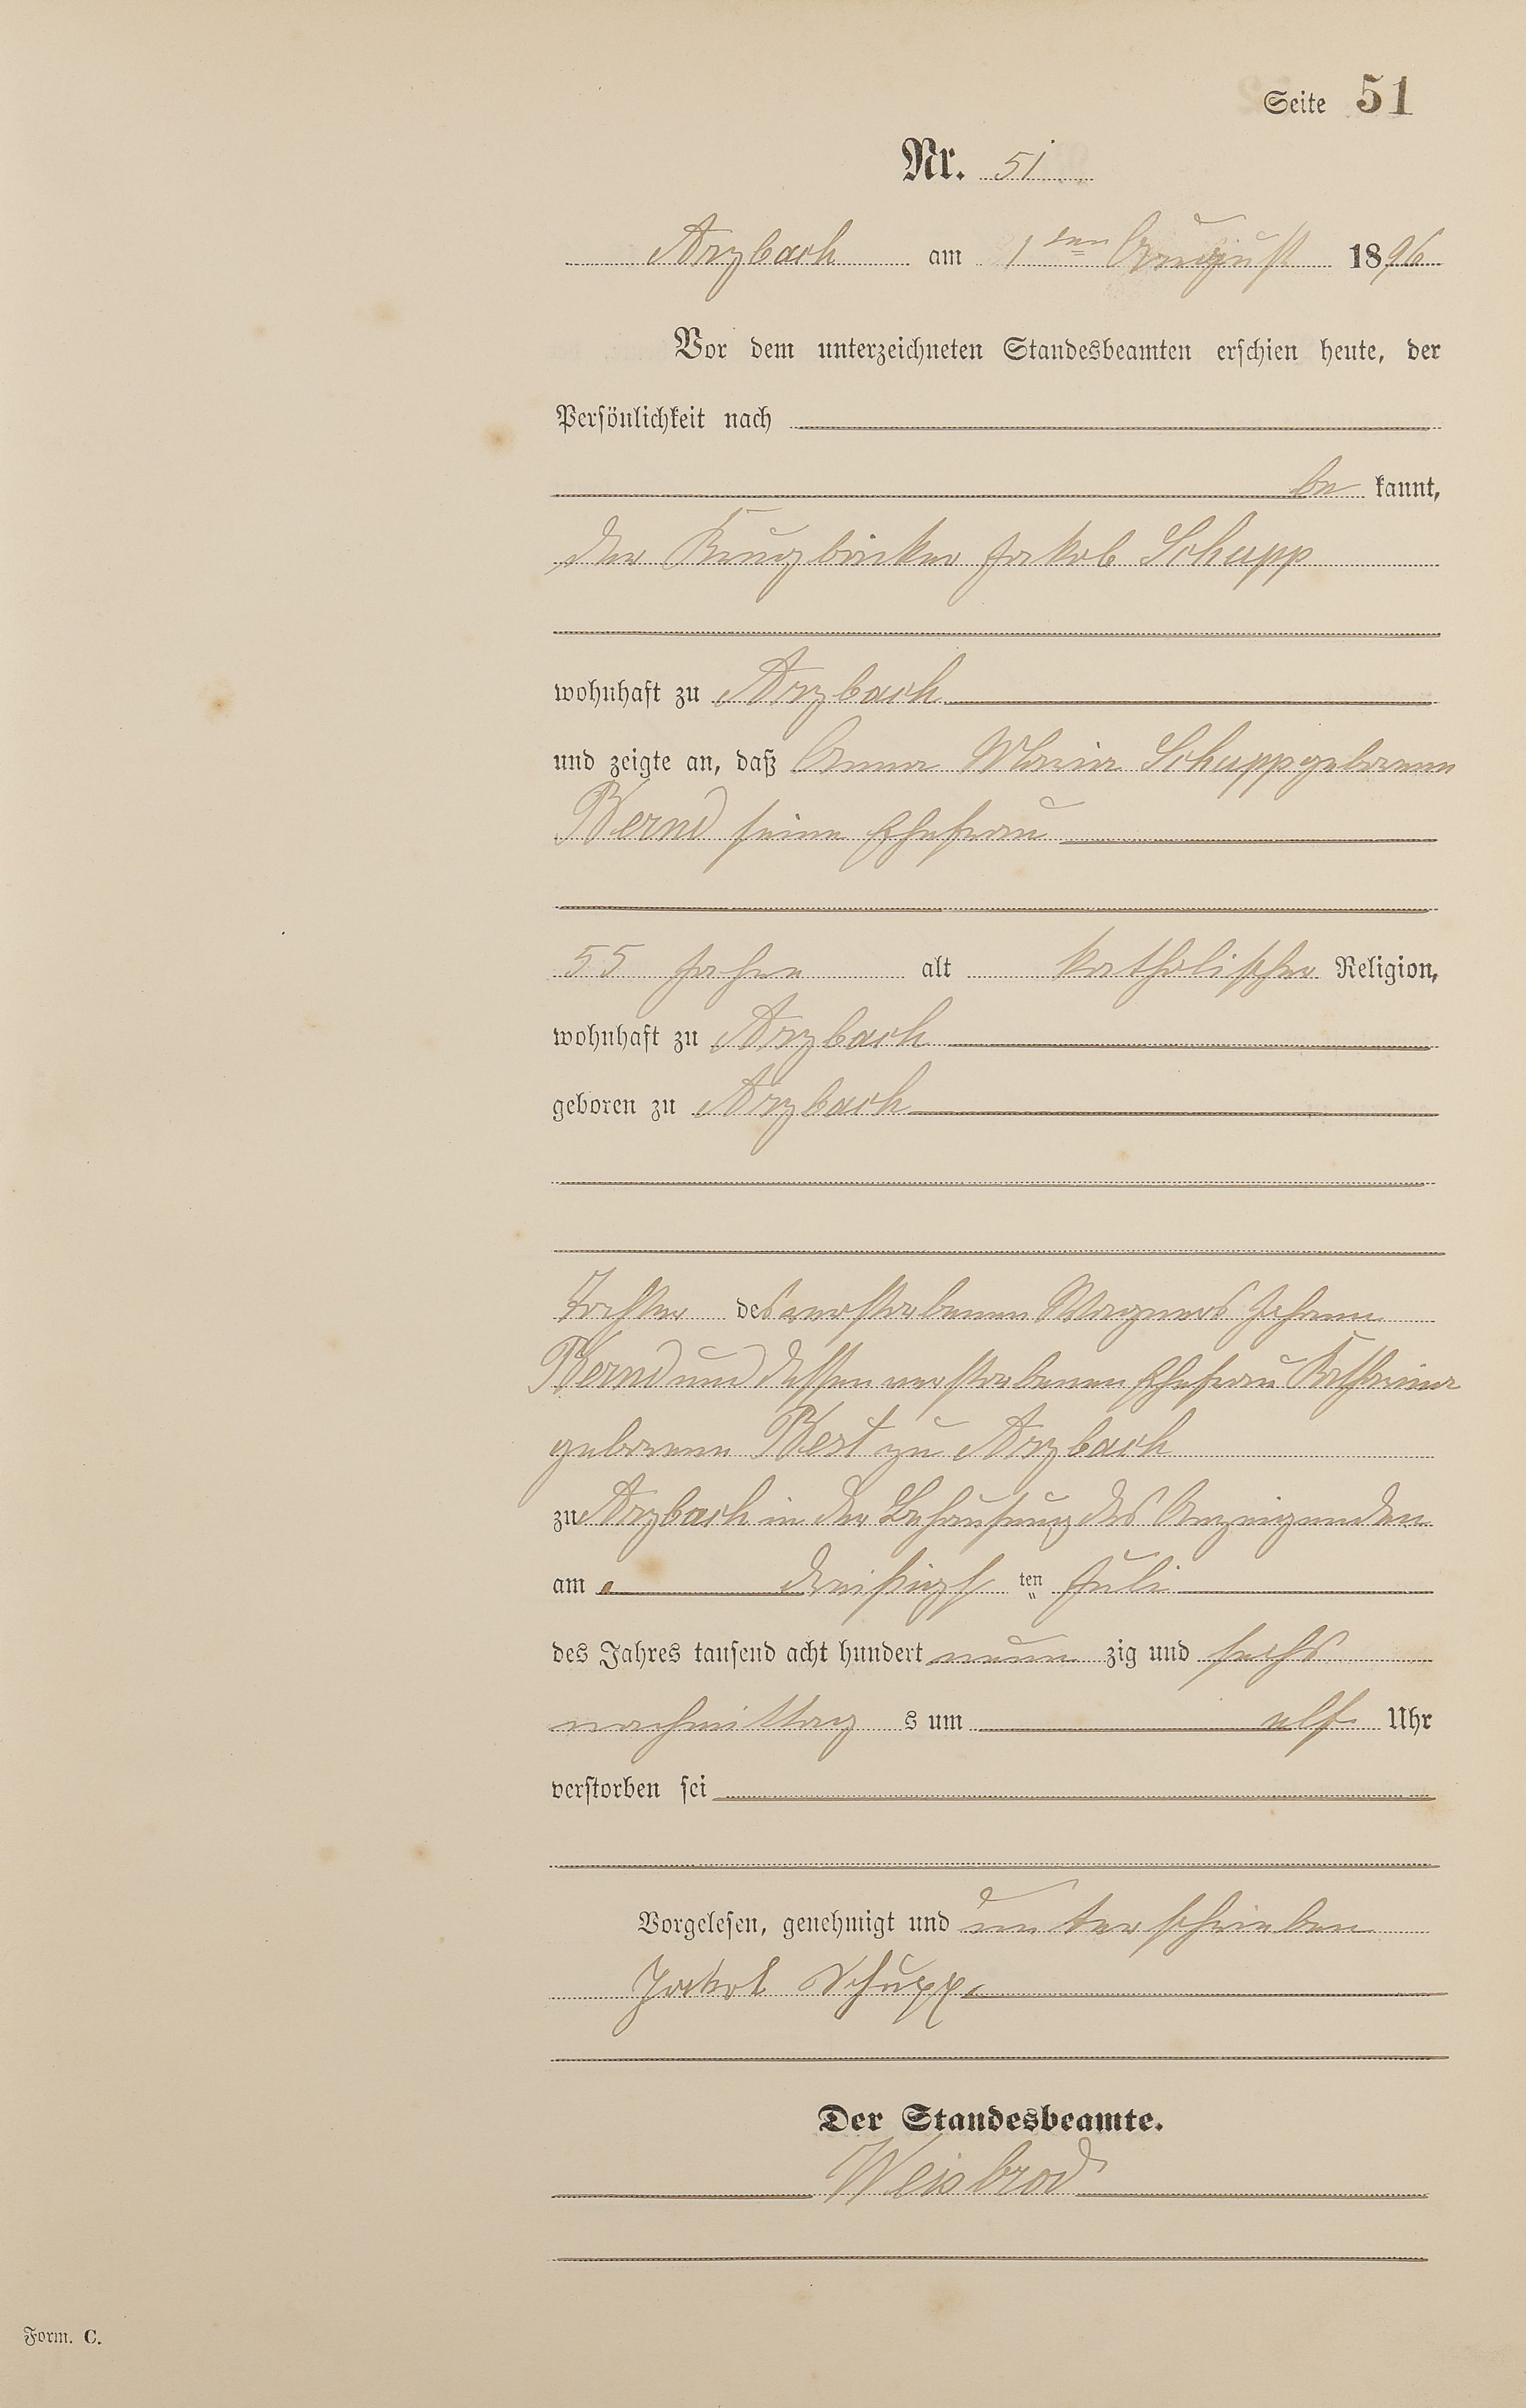 Seite 51
Nr. 51
Arzbach am 1ten August 1896
Vor dem unterzeichneten Standesbeamten erschien heute, der
Persönlichkeit nach
be kannt,
der Krugbäcker Jakob Schupp
wohnhaft zu Arzbach
und zeigte an, daß Anna Maria Schupp geborene
Bernd seine Ehefrau
55 Jahre alt katholischer Religion,
wohnhaft zu Arzbach
geboren zu Arzbach
Tochter des verstorbenen Wagners Johann
Bernd und dessen verstorbenen Ehefrau Katharina
geborene Best zu Arzbach
zu Arzbach in der Behausung des Anzeigenden
am dreißigs ten Juli
des Jahres tausend acht hundert neun zig und sechs
nachmittag s um elf Uhr
verstorben sei
Vorgelesen, genehmigt und unterschrieben
Jakob Schupp
Der Standesbeamte.
Weisbrod
Form. C.